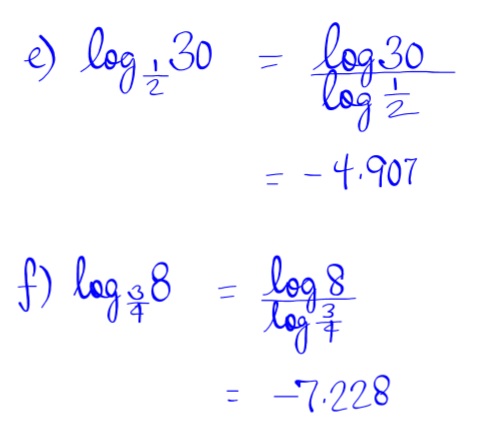 e) log_{1/2} 30 = \frac{log 30}{log \frac{1}{2}}
= -4.907
f) log_{3/4} 8 = \frac{log 8}{log \frac{3}{4}}
= -7.228